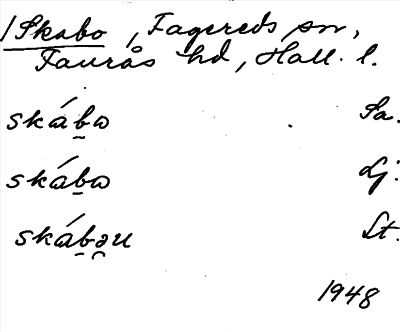 /Skabo, Fagereds sn,
Faurås hd, Hall. l.
skáb̠ω Sa.
skáb̠ω Lj.
skáb̠ə̯u St.
1948